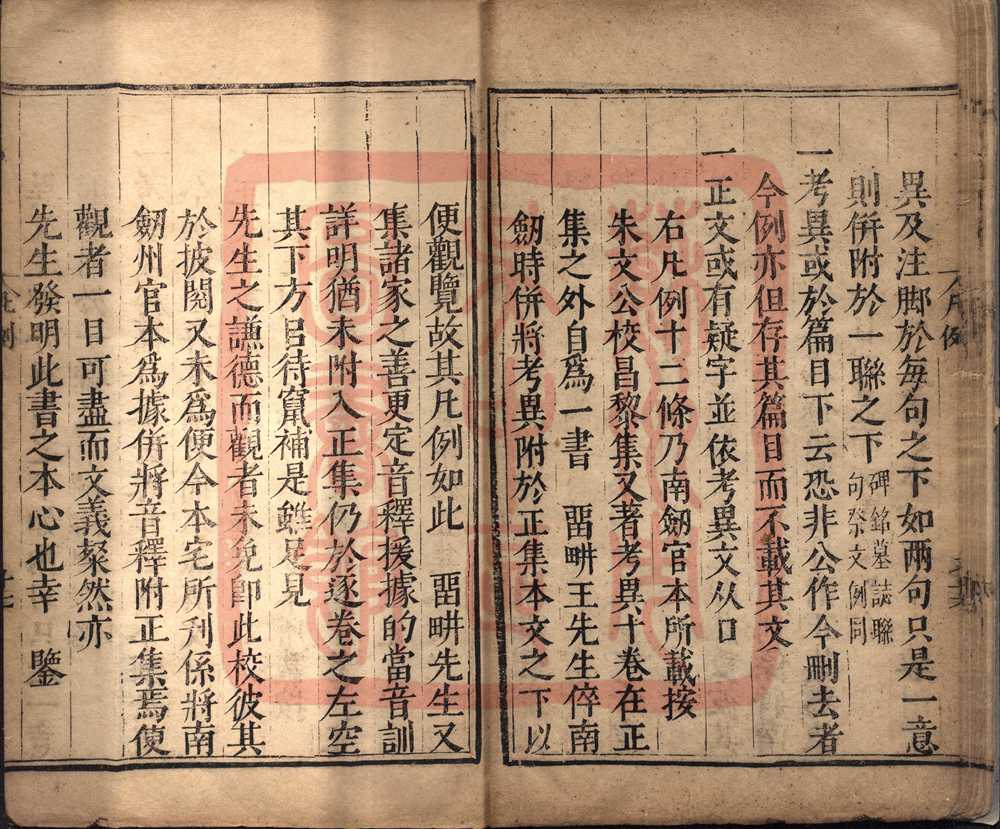 異及注脚於每句之下如兩句只是一意
則併附於一聯之下碑銘墓誌聯
句祭文例同
一考異或於篇目下云恐非公作今刪去者
今例亦但存其篇目而不載其文
一正文或有疑字並依考異文从口
右凡例十二條乃南劒官本所載按
朱文公校昌黎集又著考異十卷在正
集之外自爲一書 畱畊王先生倅南
劒時併將考異附於正集本文之下以
便觀覽故其凡例如此 畱畊先生又
集諸家之善更定音釋援據的當音訓
詳明猶未附入正集仍於逐卷之左空
其下方㠯待竄補是雖足見
先生之謙德而觀者未免卽此校彼其
於披閱又未爲便今本宅所刋係將南
劒州官本爲據併將音釋附正集焉使
觀者一目可盡而文義粲然亦
先生發明此書之本心也幸 鑒
凡例